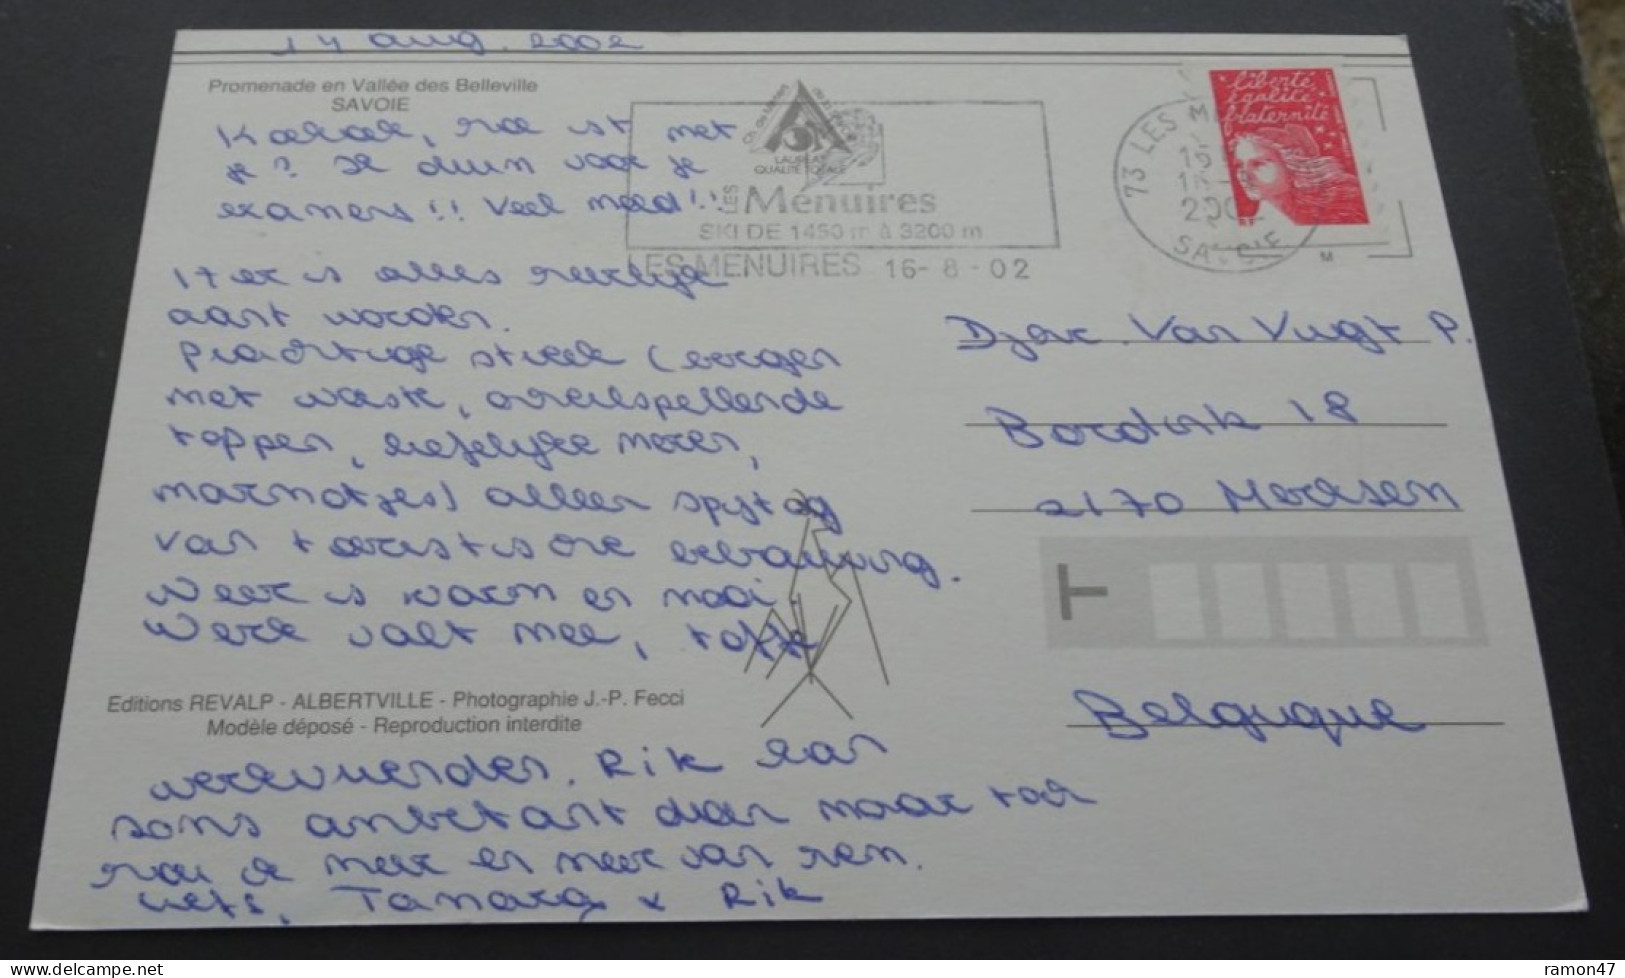 14 aug. 2002
Promenade en Vallée des Belleville
SAVOIE
Koekoek, hoe is 't met
je? Ik duim voor je
examens!! Veel moed!!
Hier is alles heerlijk
aan 't worden.
Prachtige streek (bergen
met woeste, overspellende
toppen, liefelijke meren,
marmotjes) alleen spijtig
van toeristische bebouwing.
Weer is warm en mooi.
Werk valt mee, toffe
Editions REVALP - ALBERTVILLE - Photographie J.-P. Fecci
Modèle déposé - Reproduction interdite
werkvrienden. Rik kan
soms ambetant doen maar toch
hou ik meer en meer van hem.
liefs, Tamara & Rik
Ch. de Métiers
LAURÉAT
QUALITÉ TOTALE
LES Menuires
SKI DE 1450 m à 3200 m
LES MENUIRES 16-8-02
73 LES M
2002
SAVOIE
liberté
égalité
fraternité
RF
M
Djer. Van Vugt P.
Bordink 18
2170 Merksem
T
Belgique
ramon47